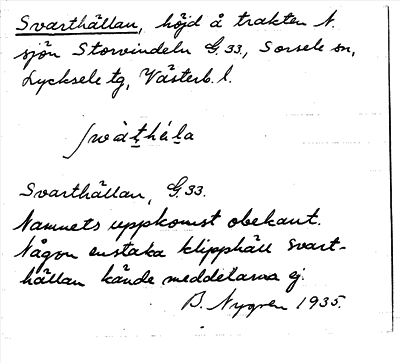 Svarthällan, höjd å trakten N.
sjön Storvindeln G.33., Sorsele sn,
Lycksele tg, Västerb. l.
Svarthällan, G.33.
Namnets uppkomst obekant.
Någon enstaka klipphäll Svart-
hällan kände meddelarna ej.
B. Nygren 1935.